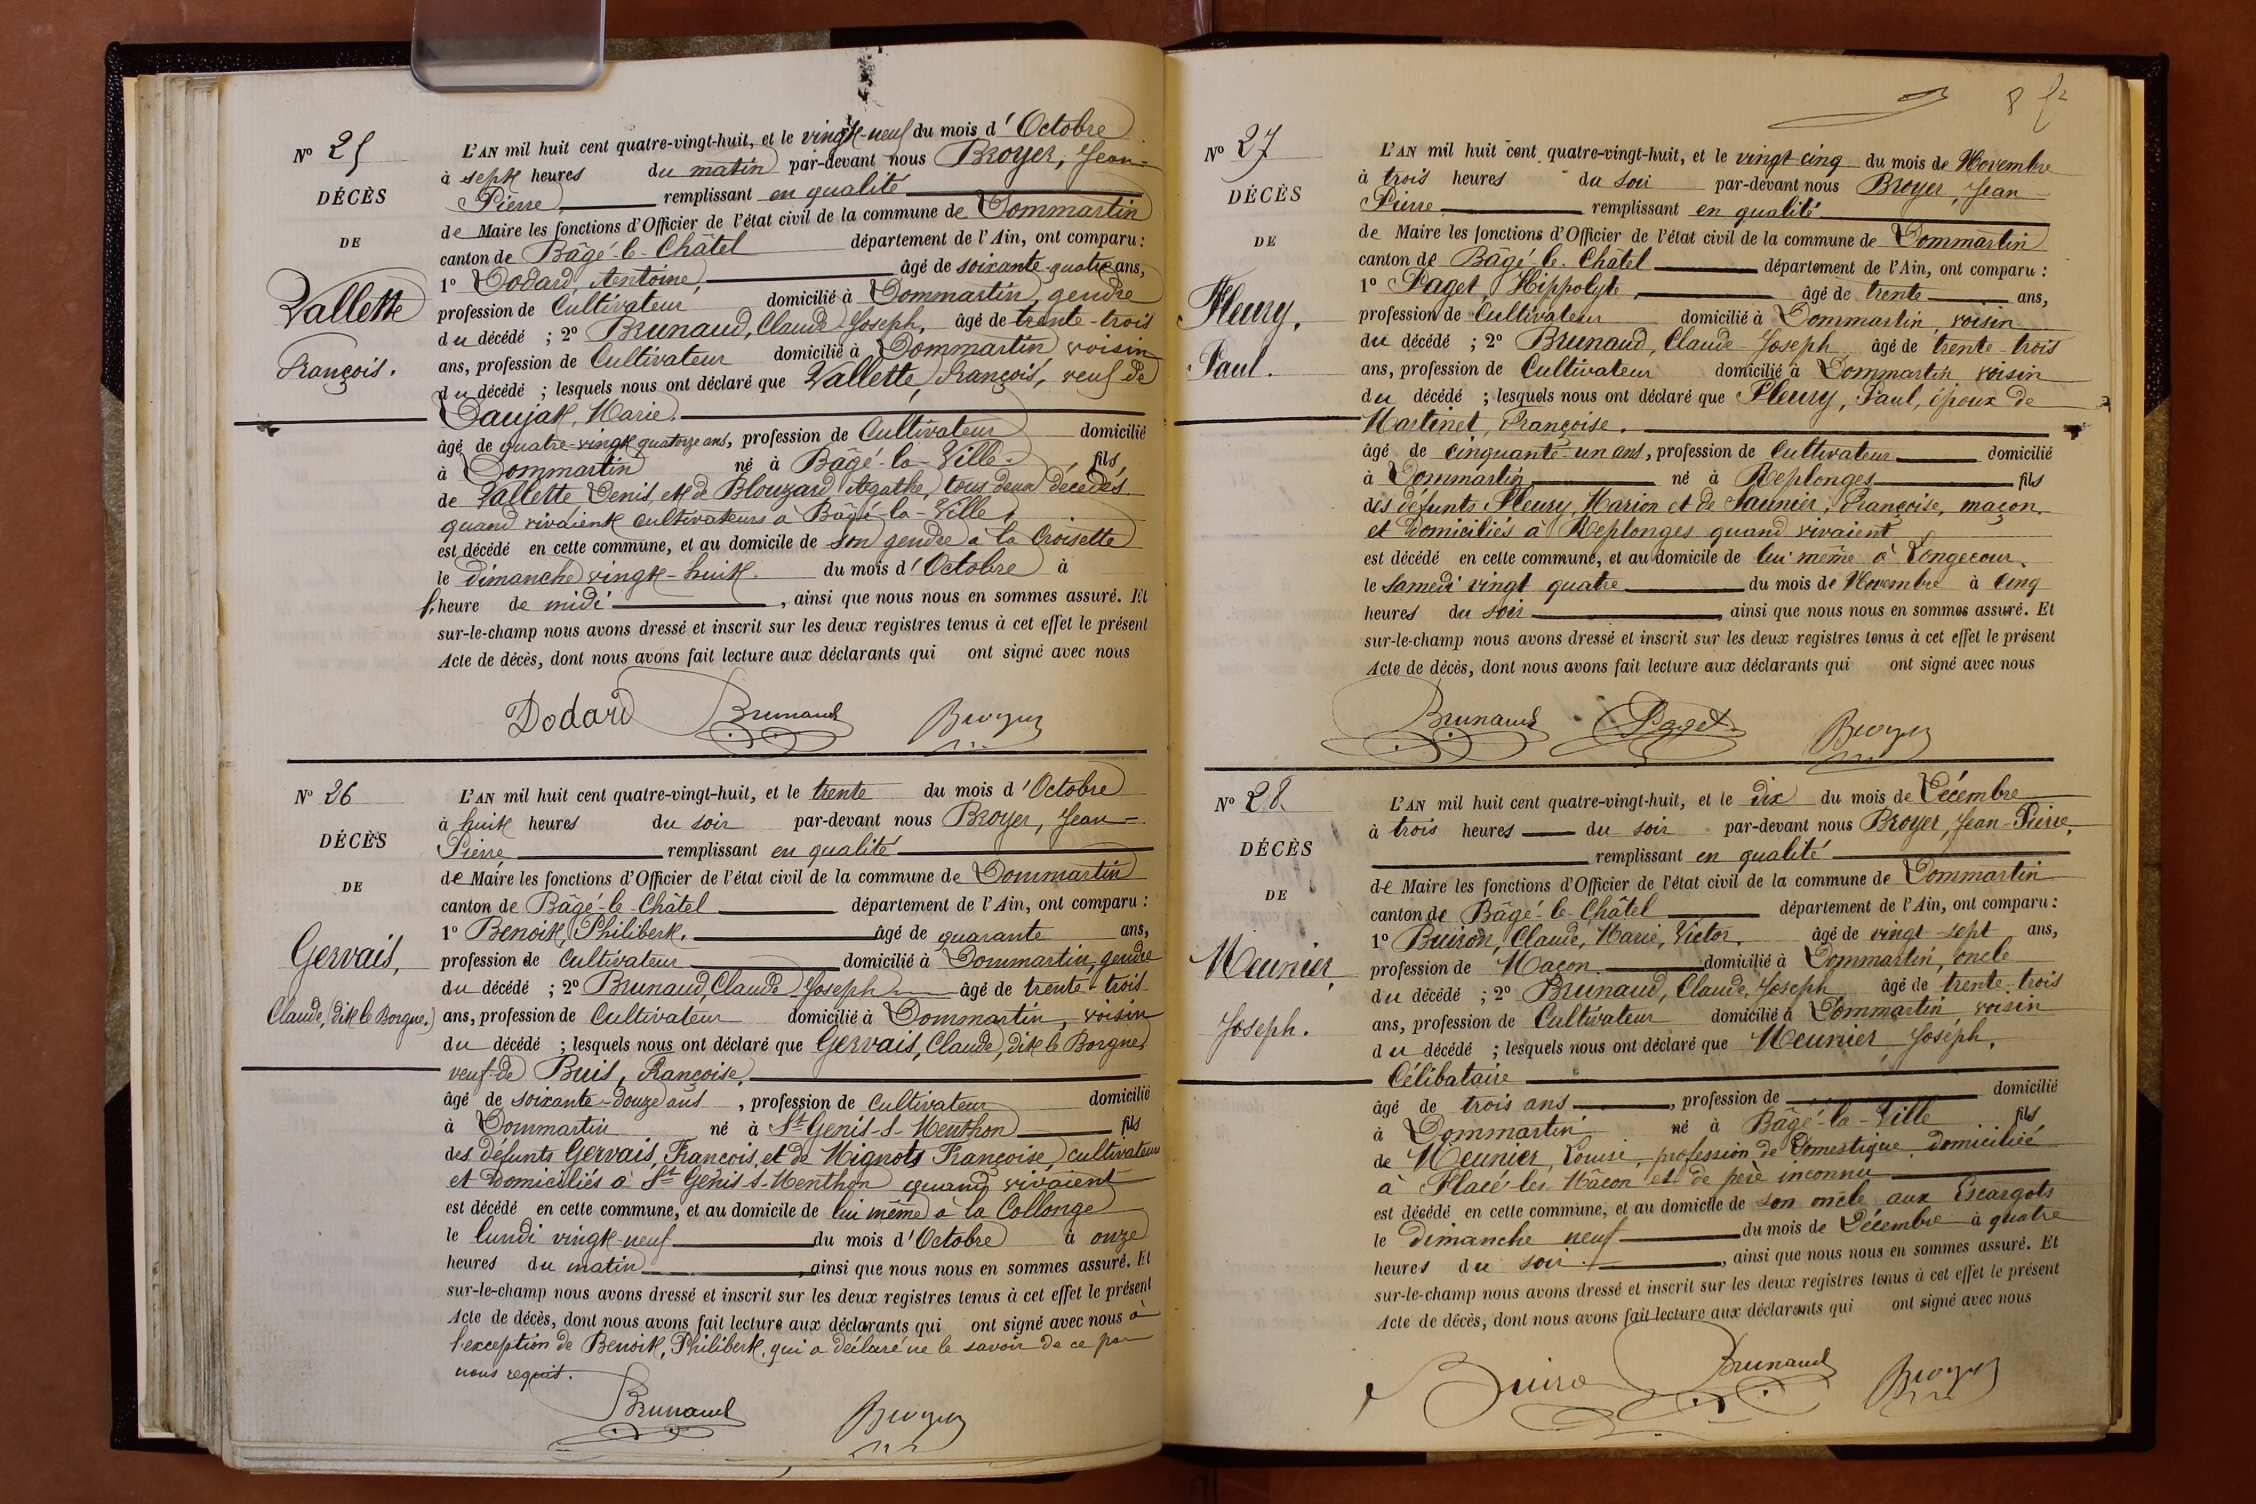 N° 25
DÉCÈS
DE
Vallette
François.
L'AN mil huit cent quatre-vingt-huit, et le vingt-neuf du mois d'Octobre
à sept heures du matin par-devant nous Broyer, Jean-
Pierre remplissant en qualité
de Maire les fonctions d'Officier de l'état civil de la commune de Dommartin
canton de Bâgé-le-Châtel département de l'Ain, ont comparu :
1° Dodard, Antoine, âgé de soixante-quatre ans,
profession de Cultivateur domicilié à Dommartin, gendre
du décédé ; 2° Brunaud, Claude-Joseph, âgé de trente-trois
ans, profession de Cultivateur domicilié à Dommartin, voisin
du décédé ; lesquels nous ont déclaré que Vallette, François, veuf de
Daujat, Marie.
âgé de quatre-vingt quatorze ans, profession de Cultivateur domicilié
à Dommartin né à Bâgé-la-Ville fils
de Vallette Denis, et de Blouzard Agathe, tous deux décédés
quand vivaient cultivateurs à Bâgé-la-Ville,
est décédé en cette commune, et au domicile de son gendre à la Croisette
le dimanche vingt-huit. du mois d'Octobre à
l'heure de midi, ainsi que nous nous en sommes assuré. Et
sur-le-champ nous avons dressé et inscrit sur les deux registres tenus à cet effet le présent
Acte de décès, dont nous avons fait lecture aux déclarants qui ont signé avec nous
Dodard Brunaud Broyer
N° 26
DÉCÈS
DE
Gervais,
Claude, dit le Borgne.
L'AN mil huit cent quatre-vingt-huit, et le trente du mois d'Octobre
à huit heures du soir par-devant nous Broyer, Jean-
Pierre remplissant en qualité
de Maire les fonctions d'Officier de l'état civil de la commune de Dommartin
canton de Bâgé-le-Châtel département de l'Ain, ont comparu :
1° Benoit, Philibert, âgé de quarante ans,
profession de Cultivateur domicilié à Dommartin, gendre
du décédé ; 2° Brunaud, Claude-Joseph âgé de trente-trois
ans, profession de Cultivateur domicilié à Dommartin, voisin
du décédé ; lesquels nous ont déclaré que Gervais, Claude, dit le Borgne
veuf de Buis, Françoise,
âgé de soixante-douze ans, profession de Cultivateur domicilié
à Dommartin né à St Genis-s-Menthon fils
des défunts Gervais, François, et de Mignots Françoise, cultivateurs
et domiciliés à St Genis-s-Menthon quand vivaient
est décédé en cette commune, et au domicile de lui même à la Collonge
le lundi vingt-neuf du mois d'Octobre à onze
heures du matin, ainsi que nous nous en sommes assuré. Et
sur-le-champ nous avons dressé et inscrit sur les deux registres tenus à cet effet le présent
Acte de décès, dont nous avons fait lecture aux déclarants qui ont signé avec nous à
l'exception de Benoit, Philibert, qui a déclaré ne le savoir de ce par
nous requit.
Brunaud Broyer
N° 27
DÉCÈS
DE
Fleury,
Paul.
L'AN mil huit cent quatre-vingt-huit, et le vingt cinq du mois de Novembre
à trois heures du soir par-devant nous Broyer, Jean-
Pierre remplissant en qualité
de Maire les fonctions d'Officier de l'état civil de la commune de Dommartin
canton de Bâgé-le-Châtel département de l'Ain, ont comparu :
1° Paget, Hippolyte, âgé de trente ans,
profession de Cultivateur domicilié à Dommartin, voisin
du décédé ; 2° Brunaud, Claude-Joseph, âgé de trente-trois
ans, profession de Cultivateur domicilié à Dommartin voisin
du décédé ; lesquels nous ont déclaré que Fleury, Paul, époux de
Martinet, Françoise.
âgé de cinquante-un ans, profession de Cultivateur domicilié
à Dommartin né à Replonges fils
des défunts Fleury, Marion et de Saunier, Françoise, maçon
et domiciliés à Replonges quand vivaient
est décédé en cette commune, et au domicile de lui même à Longecour.
le Samedi vingt quatre du mois de Novembre à cinq
heures du soir, ainsi que nous nous en sommes assuré. Et
sur-le-champ nous avons dressé et inscrit sur les deux registres tenus à cet effet le présent
Acte de décès, dont nous avons fait lecture aux déclarants qui ont signé avec nous
Brunaud Paget Broyer
N° 28.
DÉCÈS
DE
Meunier,
Joseph.
L'AN mil huit cent quatre-vingt-huit, et le dix du mois de Décembre
à trois heures du soir par-devant nous Broyer, Jean-Pierre,
remplissant en qualité
de Maire les fonctions d'Officier de l'état civil de la commune de Dommartin
canton de Bâgé-le-Châtel département de l'Ain, ont comparu :
1° Buiron, Claude, Marie, Victor, âgé de vingt-sept ans,
profession de Maçon. domicilié à Dommartin, oncle
du décédé ; 2° Brunaud, Claude-Joseph âgé de trente-trois
ans, profession de Cultivateur domicilié à Dommartin voisin
du décédé ; lesquels nous ont déclaré que Meunier, Joseph,
Célibataire
âgé de trois ans, profession de domicilié
à Dommartin né à Bâgé-la-Ville fils
de Meunier, Louise, profession de Domestique domiciliée
à Placé-les-Mâcon et de père inconnu
est décédé en cette commune, et au domicile de son oncle aux Escargots
le dimanche neuf du mois de Décembre à quatre
heures du soir, ainsi que nous nous en sommes assuré. Et
sur-le-champ nous avons dressé et inscrit sur les deux registres tenus à cet effet le présent
Acte de décès, dont nous avons fait lecture aux déclarants qui ont signé avec nous
Buiron Brunaud Broyer